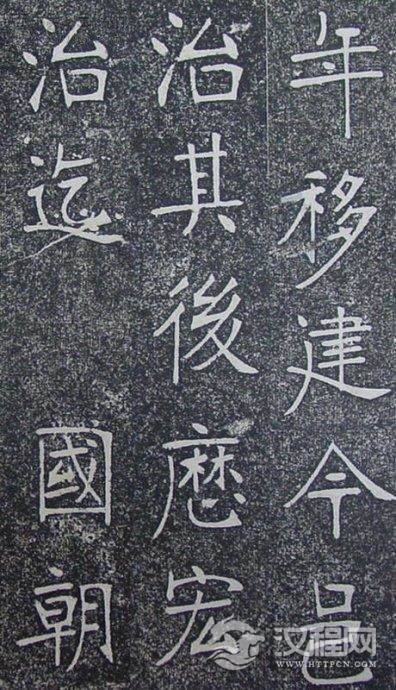 年移建今邑
治其後歷宏
治迄 國朝
汉程网
WWW.HTTPCN.COM